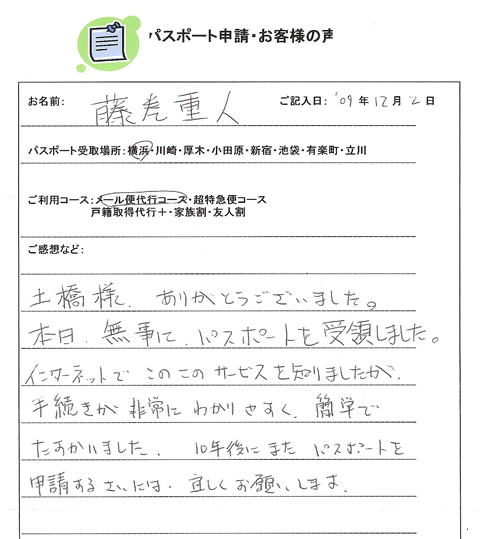 パスポート申請・お客様の声
お名前: 藤 重人 ご記入日: '09年12月2日
パスポート受取場所:横浜・川崎・厚木・小田原・新宿・池袋・有楽町・立川
ご利用コース:メール便代行コース・超特急便コース
戸籍取得代行+・家族割・友人割
ご感想など:
土橋様、ありがとうございました。
本日、無事に、パスポートを受領しました。
インターネットで このこの サービスを知りましたが、
手続きが 非常に わかりやすく、簡単で
たすかいました。 10年後に また パスポートを
申請するさいには、宜しくお願いします。